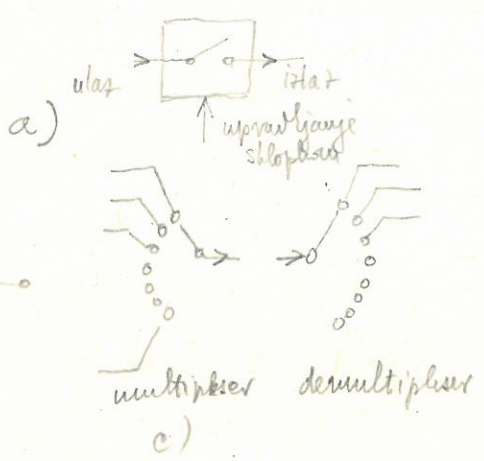 ulaz
izlaz
a)
upravljanje
sklopkom
multiplekser demultiplekser
c)